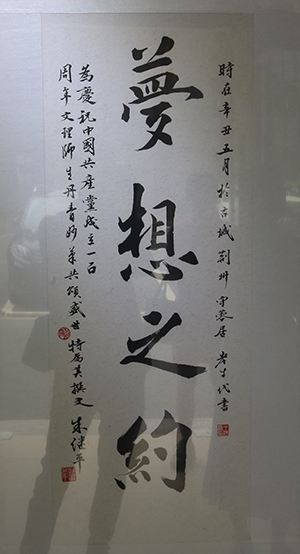 時在辛丑五月於古城荆州
夢想之約
為慶祝中國共產黨成立一百
周年文理師生丹青妙筆共頌盛世 特屬其撰文 朱继平